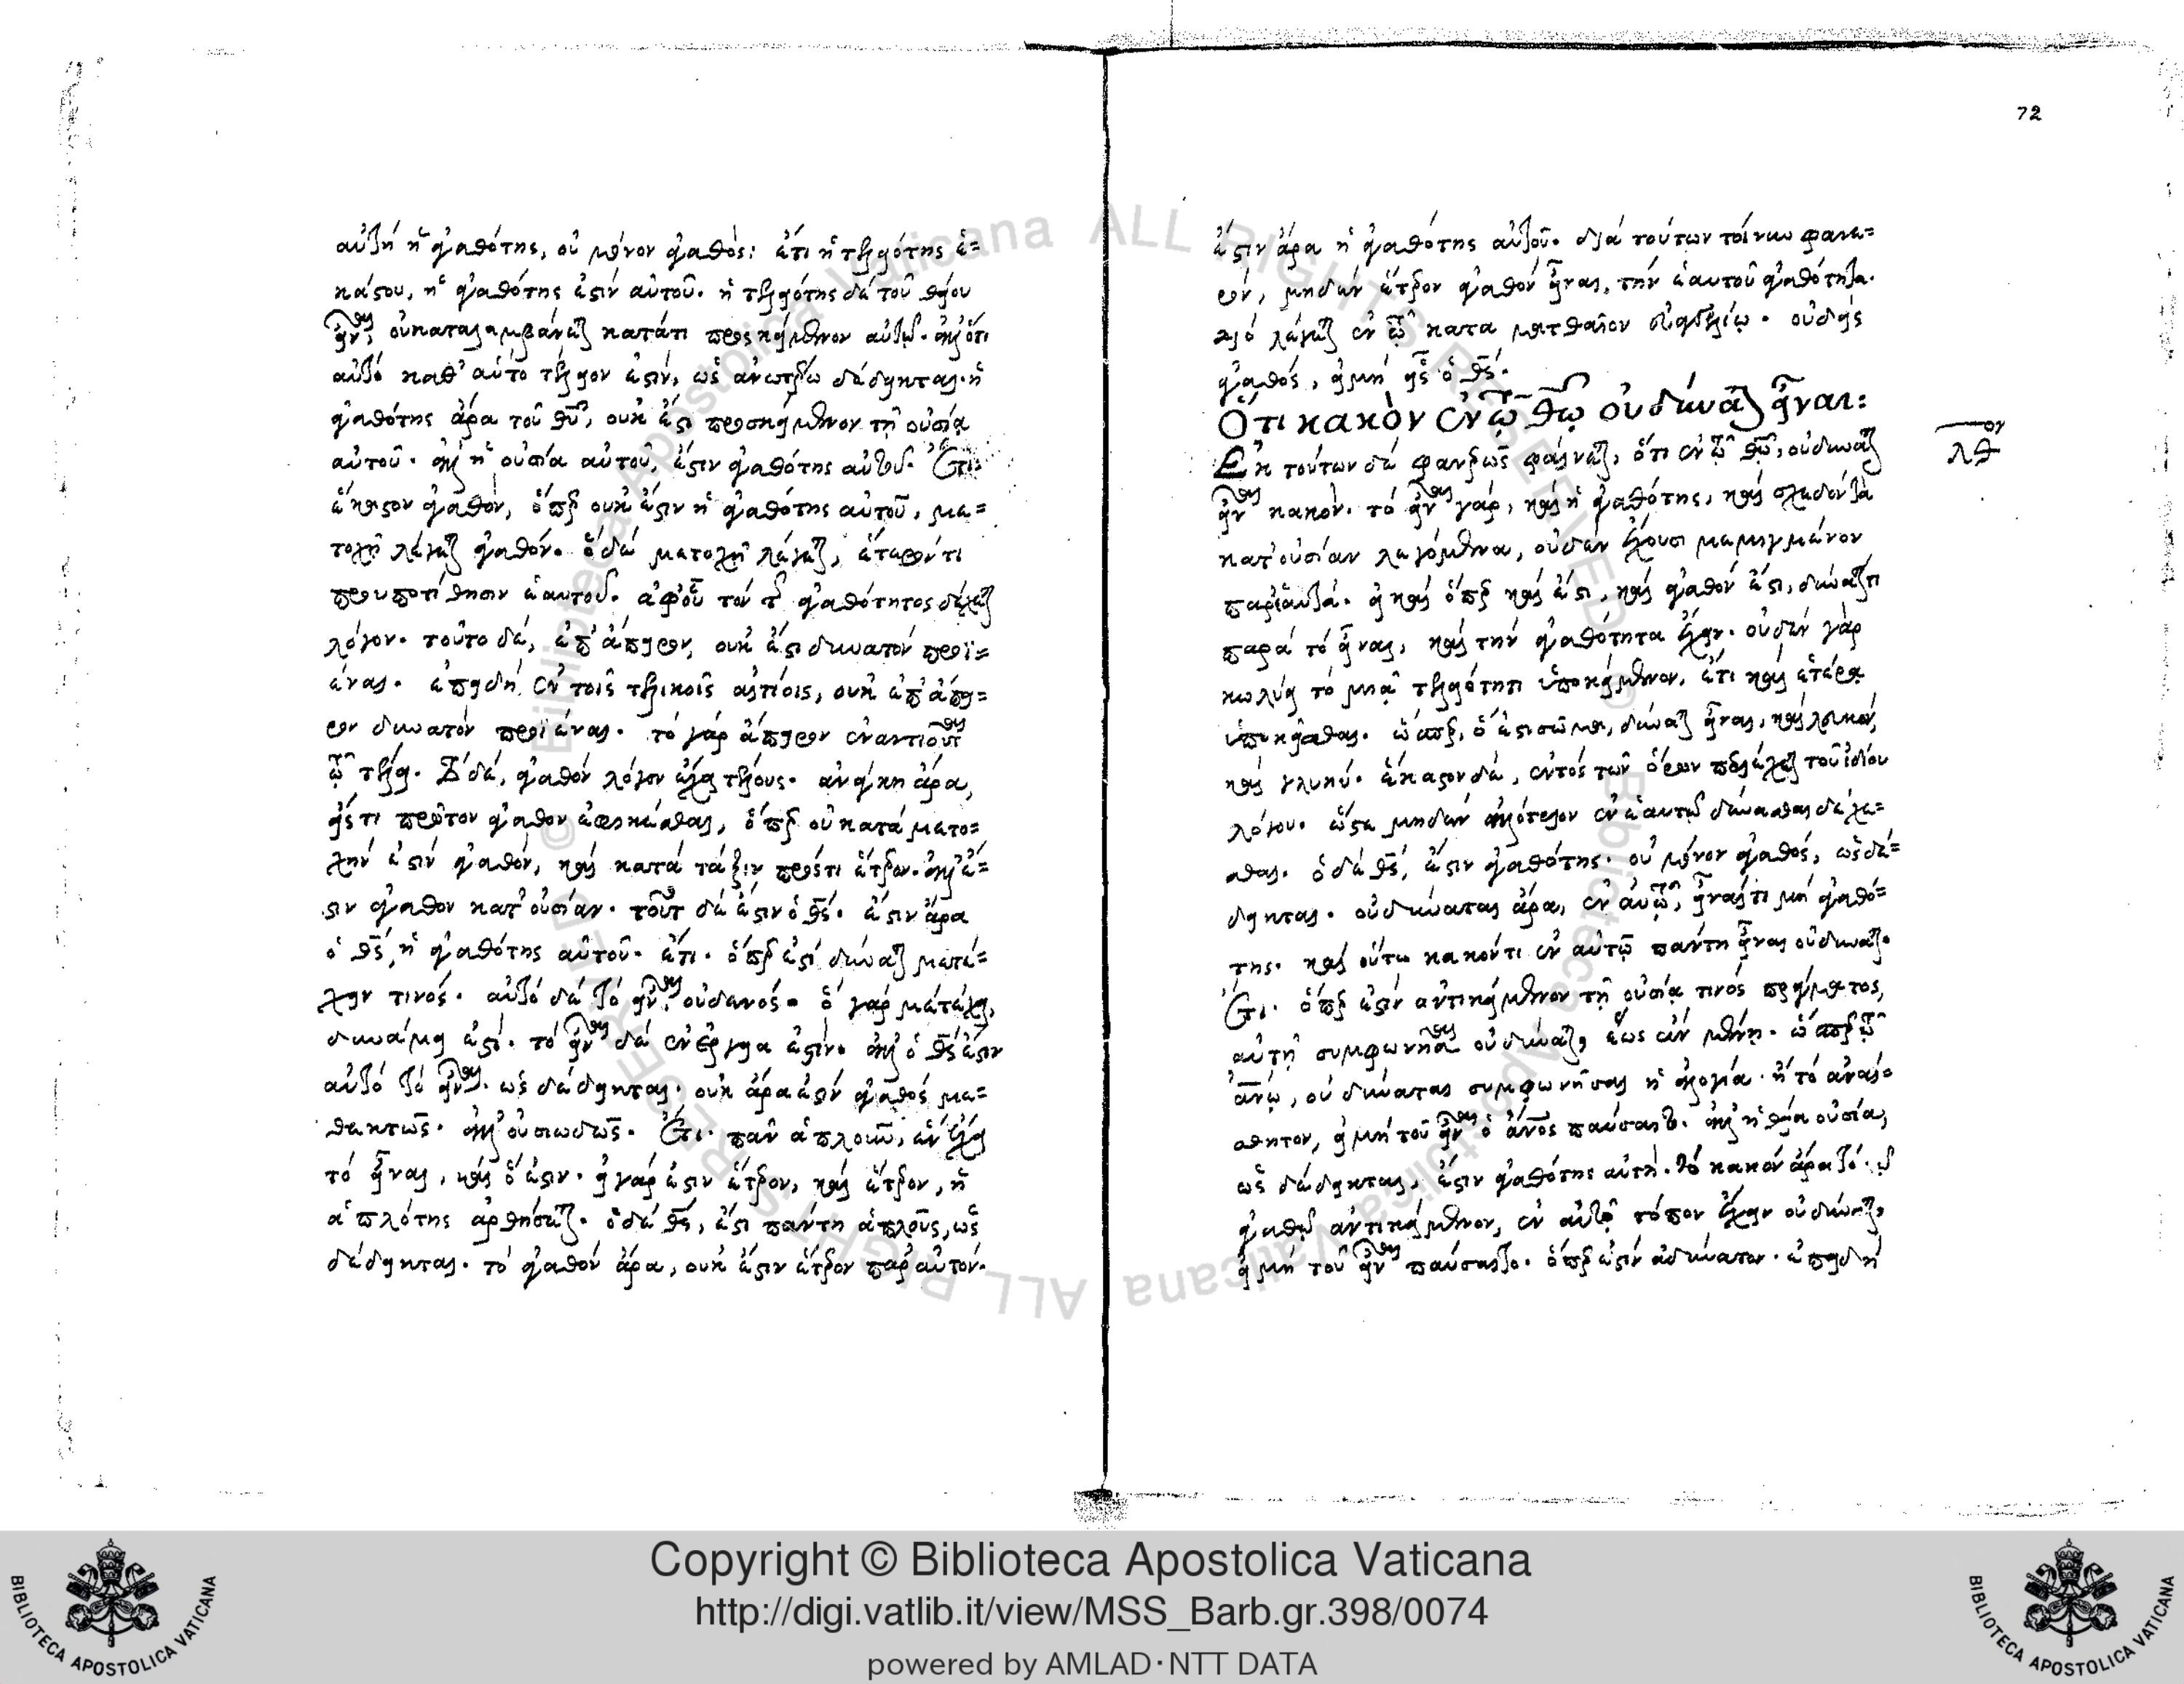 αὐτὴ ἡ ἀγαθότης, οὐ μόνον ἀγαθός: ἔτι ἡ τελειότης ἑ=
κάστου, ἡ ἀγαθότης ἐστὶν αὐτοῦ. ἡ τελειότης δὲ τοῦ θείου
εἶναι οὐ καταλαμβάνεται κατά τι προσκείμενον αὐτῷ. ἀλλ' ὅτι
αὐτὸ καθ' αὑτὸ τέλειον ἐστὶν, ὡς ἀνωτέρω δέδεικται. ἡ
ἀγαθότης ἄρα τοῦ θῦ, οὐκ ἔστι προσκείμενον τῇ οὐσίᾳ
αὐτοῦ. ἀλλ' ἡ οὐσία αὐτοῦ, ἐστὶν ἀγαθότης αὐτοῦ. Ἔτι
ἕκαστον ἀγαθὸν, ὅπερ οὐκ ἐστὶν ἡ ἀγαθότης αὐτοῦ, με=
τοχῇ λέγεται ἀγαθόν. ὃ δὲ μετοχῇ λέγεται, ἕτερόν τι
προϋποτίθησιν ἑαυτοῦ. ἀφ' οὗ τὸν τῆς ἀγαθότητος δέχεται
λόγον. τοῦτο δὲ, ἐπ' ἄπειρον, οὐκ ἔστι δυνατὸν προϊ=
έναι. ἐπειδὴ ἐν τοῖς τελικοῖς αἰτίοις, οὐκ ἐπ' ἄπει=
ρον δυνατὸν προϊέναι. τὸ γὰρ ἄπειρον ἐναντιοῦται
τῷ τέλει. τὸ δὲ, ἀγαθὸν λόγον ἔχει τέλους. ἀνάγκη ἄρα,
εἴς τι πρῶτον ἀγαθὸν ἀφικνέεσθαι, ὅπερ οὐ κατὰ μετο=
χὴν ἐστὶν ἀγαθὸν, καὶ κατὰ τάξιν πρός τι ἕτερον. ἀλλ' ἐ=
στιν ἀγαθὸν κατ' οὐσίαν. τοῦτο δὲ ἐστὶν ὁ θς. ἔστιν ἄρα
ὁ θς, ἡ ἀγαθότης αὐτοῦ. ἔτι. ὅπερ ἐστί δύναται μετέ=
χειν τινός. αὐτὸ δὲ τὸ εἶναι οὐδενός. ὃ γὰρ μετέχει,
δυνάμει ἐστί. τὸ εἶναι δὲ ἐνέργεια ἐστίν. ἀλλ' ὁ θς ἐστὶν
αὐτὸ τὸ εἶναι. ὡς δέδεικται. οὐκ ἄρα ἐστὶν ἀγαθὸς με=
θεκτῶς. ἀλλ' οὐσιωδῶς. Ἔτι. πᾶν ἁπλοῦν, ἓν ἔχει
τὸ εἶναι, καὶ ὅ ἐστιν. εἰ γάρ ἐστιν ἕτερον, καὶ ἕτερον, ἡ
ἁπλότης ἀρθήσεται. ὁ δὲ θς, ἐστι πάντη ἁπλοῦς, ὡς
δέδεικται. τὸ ἀγαθὸν ἄρα, οὐκ ἔστιν ἕτερον παρ' αὐτόν.
72
ἔστιν ἄρα ἡ ἀγαθότης αὐτοῦ. διὰ τούτων τοίνυν φανε=
ρὸν, μηδὲν ἕτερον ἀγαθὸν εἶναι, τὴν ἑαυτοῦ ἀγαθότητα.
διὸ λέγεται ἐν τῷ κατὰ ματθαῖον εὐαγγελίῳ. οὐδεὶς
ἀγαθὸς, εἰ μὴ εἷς ὁ θς.
Ὅτι κακὸν ἐν τῷ θῷ οὐ δύναται εἶναι:
λθον
Ἐκ τούτων δὲ φανερῶς φαίνεται, ὅτι ἐν τῷ θῷ, οὐ δύναται
εἶναι κακόν. τὸ εἶναι γὰρ, καὶ ἡ ἀγαθότης, καὶ σχεδὸν τὰ
κατ' οὐσίαν λεγόμενα, οὐδὲν ἔχουσι μεμιγμένον
παρ' ἑαυτά. εἰ καὶ ὅπερ καί ἐστι, καὶ ἀγαθόν ἐστι, δύναταί τι
παρὰ τὸ εἶναι, καὶ τὴν ἀγαθότητα ἔχειν. οὐδὲν γὰρ
κωλύει τὸ μιᾷ τελειότητι ὑποκείμενον, ἔτι καὶ ἑτέρᾳ
ὑποκεῖσθαι. ὥσπερ, ὅ ἐστι σῶμα, δύναται εἶναι, καὶ λευκὸν,
καὶ γλυκύ. ἕκαστον δὲ, ἐντὸς τῶν ὅρων περιέχεται τοῦ ἰδίου
λόγου. ὥστε μηδὲν ἀλλότριον ἐν ἑαυτῷ δύνασθαι δέχε=
σθαι. ὁ δὲ θς, ἐστὶν ἀγαθότης. οὐ μόνον ἀγαθὸς, ὡς δέ=
δεικται. οὐ δύναται ἄρα, ἐν αὐτῷ, εἶναί τι μὴ ἀγαθό=
της. καὶ οὕτω κακόν τι ἐν αὐτῷ πάντη εἶναι οὐ δύναται.
Ἔτι. ὅπερ ἐστὶν ἀντικείμενον τῇ οὐσίᾳ τινὸς πράγματος,
αὐτῇ συμφωνῆσαι οὐ δύναται, ἕως ἂν μένῃ. ὥσπερ τῷ
ἀνῳ, οὐ δύναται συμφωνῆσαι ἡ ἀλογία. ἢ τὸ ἀναί=
σθητον, εἰ μὴ τοῦ εἶναι ὁ ἀνος παύσαιτο. ἀλλ' ἡ θεία οὐσία,
ὡς δέδεικται, ἐστὶν ἀγαθότης αὐτή. τὸ κακὸν ἄρα τὸ τῷ
ἀγαθῷ ἀντικείμενον, ἐν αὐτῷ τόπον ἔχειν οὐ δύναται,
εἰ μὴ τοῦ εἶναι παύσαιτο. ὅπερ ἐστὶν ἀδύνατον. ἐπειδὴ
Copyright © Biblioteca Apostolica Vaticana
http://digi.vatlib.it/view/MSS_Barb.gr.398/0074
powered by AMLAD·NTT DATA